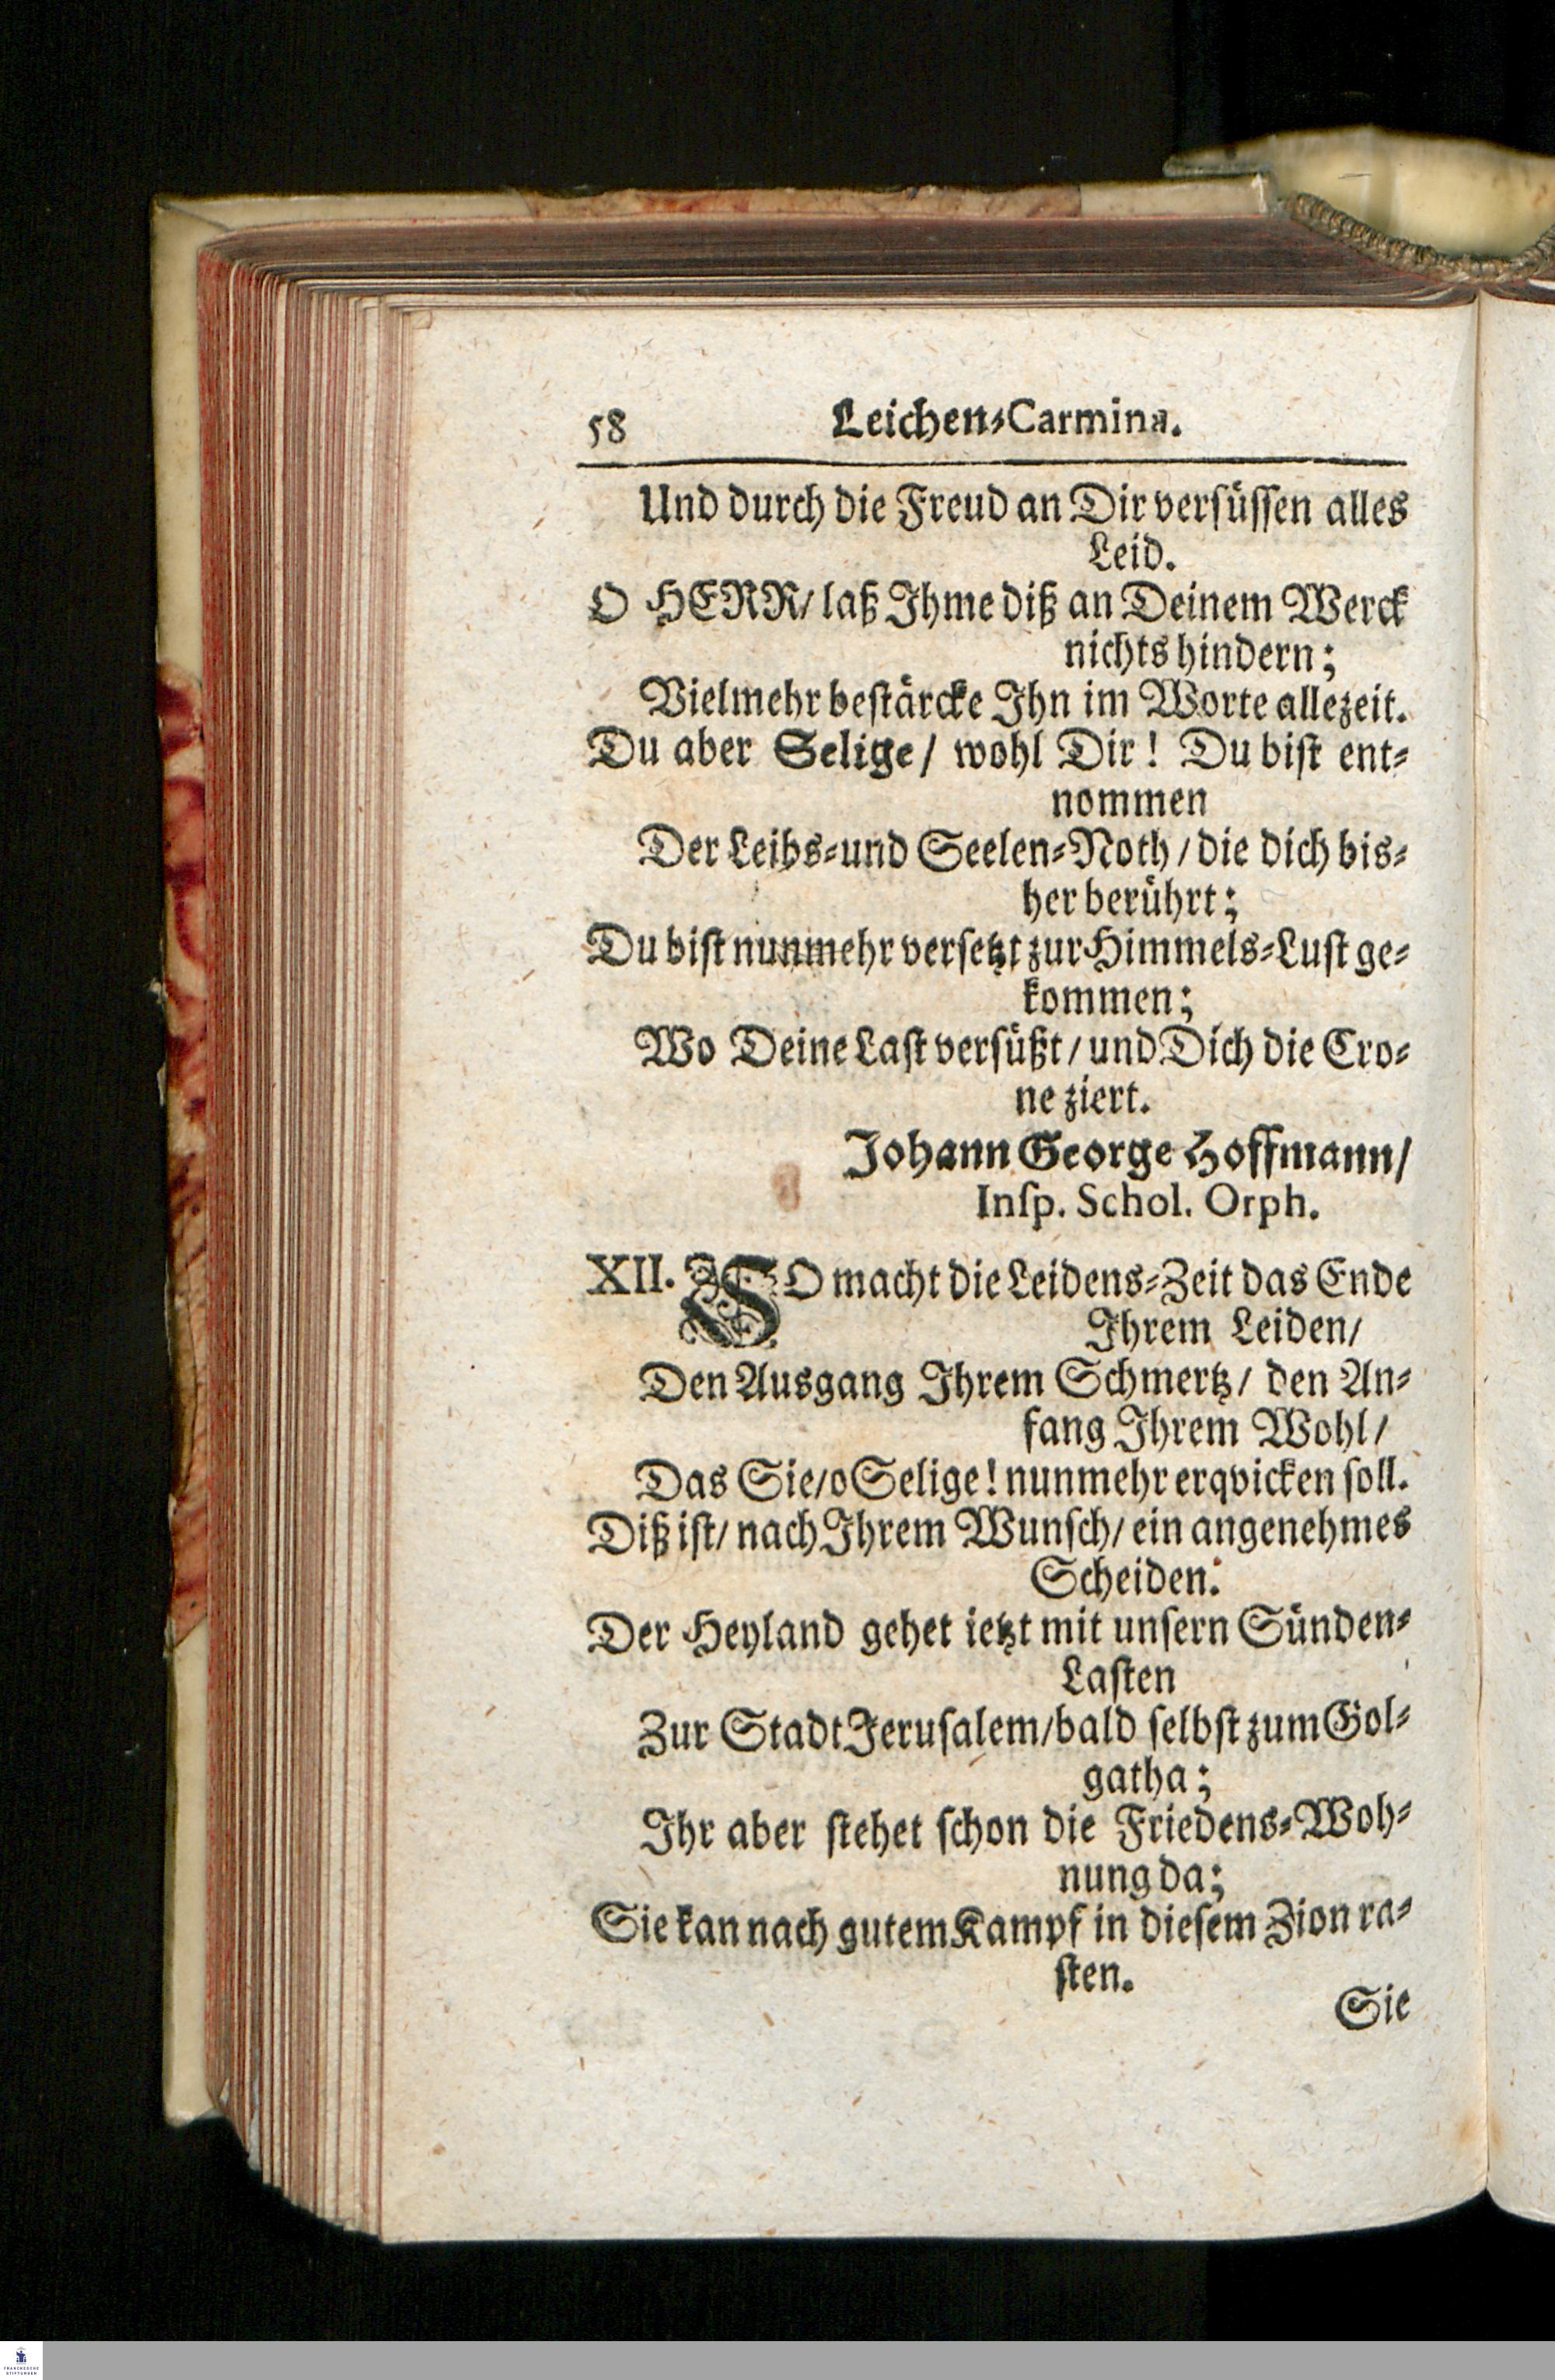 58 Leichen-Carmina.
Und durch die Freud an Dir versüssen alles
Leid.
O HERR/ laß Ihme diß an Deinem Werck
nichts hindern;
Vielmehr bestärcke Ihn im Worte allezeit.
Du aber Selige/ wohl Dir! Du bist ent-
nommen
Der Leibs-und Seelen-Noth/ die dich bis-
her berührt;
Du bist nunmehr versetzt zur Himmels-Lust ge-
kommen;
Wo Deine Last versüßt/ und Dich die Cro-
ne ziert.
Johann George Hoffmann/
Insp. Schol. Orph.
XII. SO macht die Leidens-Zeit das Ende
Ihrem Leiden/
Den Ausgang Ihrem Schmertz/ den An-
fang Ihrem Wohl/
Das Sie/ o Selige! nunmehr erqvicken soll.
Diß ist/ nach Ihrem Wunsch/ ein angenehmes
Scheiden.
Der Heyland gehet ietzt mit unsern Sünden-
Lasten
Zur Stadt Jerusalem/ bald selbst zum Gol-
gatha;
Ihr aber stehet schon die Friedens-Woh-
nung da;
Sie kan nach gutem Kampf in diesem Zion ra-
sten.
Sie
FRANCKESCHE
STIFTUNGEN